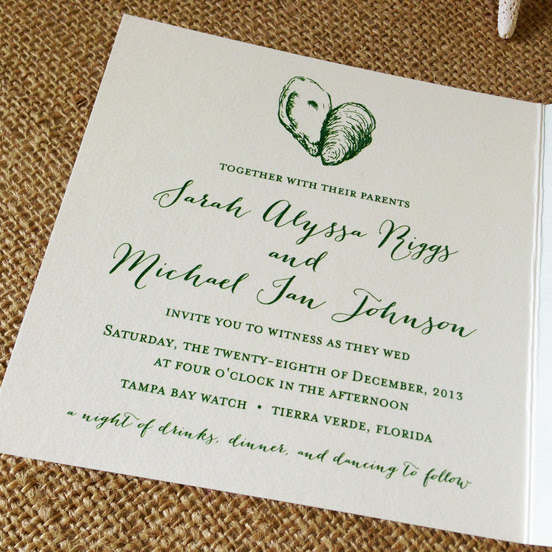 TOGETHER WITH THEIR PARENTS
Sarah Alyssa Riggs
and
Michael Ian Johnson
INVITE YOU TO WITNESS AS THEY WED
SATURDAY, THE TWENTY-EIGHTH OF DECEMBER, 2013
AT FOUR O'CLOCK IN THE AFTERNOON
TAMPA BAY WATCH • TIERRA VERDE, FLORIDA
a night of drinks, dinner, and dancing to follow